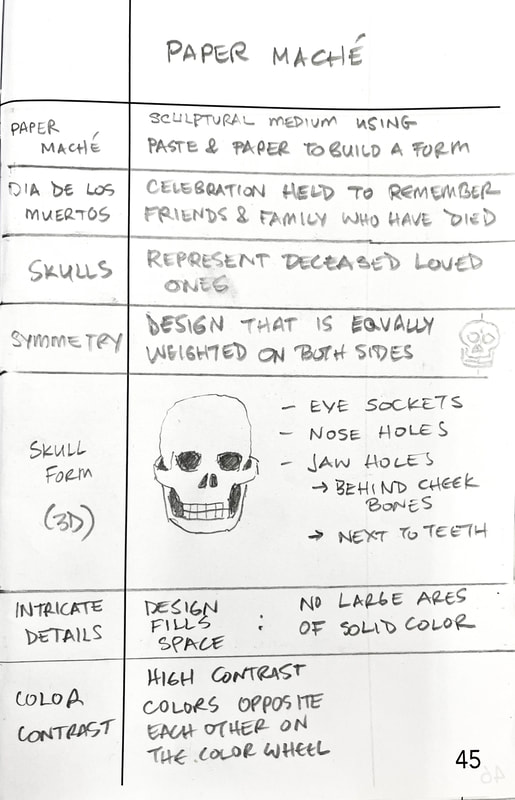 PAPER MACHÉ
PAPER
MACHÉ
SCULPTURAL MEDIUM USING
PASTE & PAPER TO BUILD A FORM
DIA DE LOS
MUERTOS
CELEBRATION HELD TO REMEMBER
FRIENDS & FAMILY WHO HAVE DIED
SKULLS
REPRESENT DECEASED LOVED
ONES
SYMMETRY
DESIGN THAT IS EQUALLY
WEIGHTED ON BOTH SIDES
SKULL
FORM
(3D)
- EYE SOCKETS
- NOSE HOLES
- JAW HOLES
→ BEHIND CHEEK
BONES
→ NEXT TO TEETH
INTRICATE
DETAILS
DESIGN
FILLS
SPACE
:
NO LARGE ARES
OF SOLID COLOR
COLOR
CONTRAST
HIGH CONTRAST
COLORS OPPOSITE
EACH OTHER ON
THE COLOR WHEEL
45